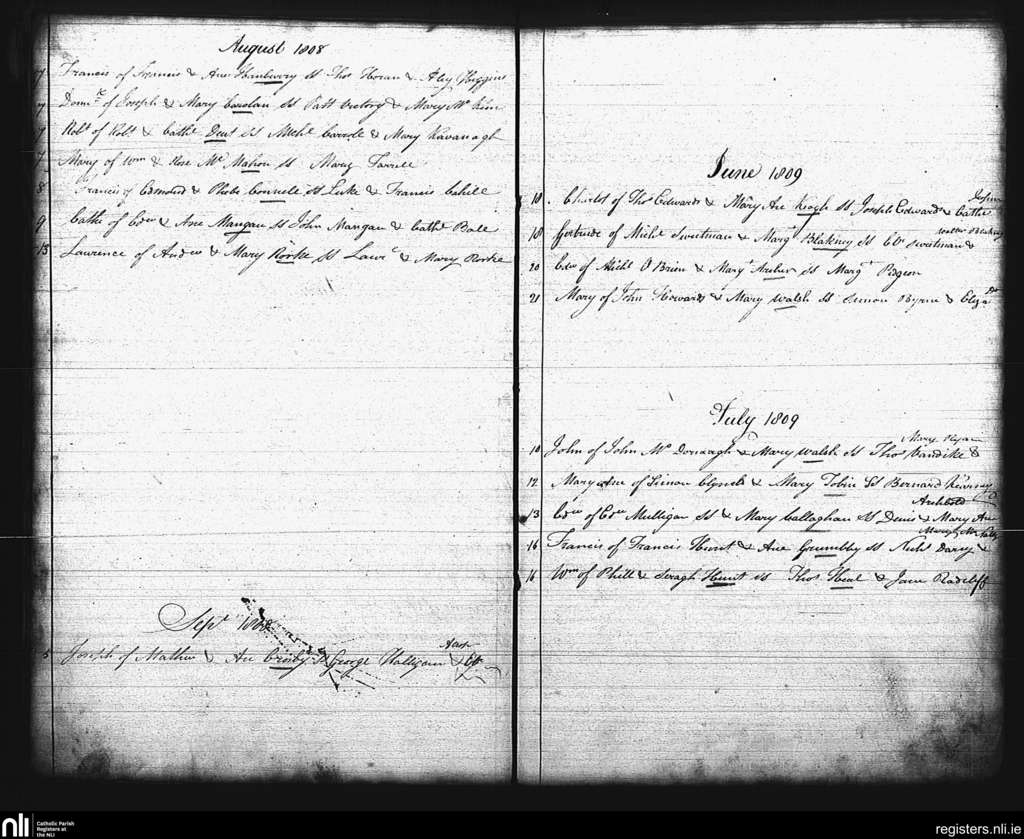 August 1808
7 Francis of Francis & Ann Hanberry Ss Thos Horan & Aley Higgins
7 Domk of Joseph & Mary Carolan Ss Patt & Mary Mc
7 Robt of Robt & Cathe Dent Ss Michl Carrole & Mary Kavanagh
7 Mary of Wm & Rose Mc Mahon Ss Mary Farrell
8 Francis of Edmond & Phebe Connell Ss Luke & Francis Cahill
9 Cathe of Edw & Ann Mangan Ss John Mangan & Cathe Ball
13 Lawrence of Andw & Mary Rorke Ss Lawc & Mary Rorke
Sept 1808
5 Joseph of Mathw & Ann Crosby Ss George Halligan &
June 1809
10 Charlot of Thos Edwards & Mary Ane Keogh Ss Joseph Edwards & Cathe
18 Gertrude of Michl Sweetman & Margt Blakney Ss Sweetman & Blakney
20 Edw of Michl O Brien & Margt Archer Ss Margt Pidgeon
21 Mary of John & Mary Walsh Ss Simon Byrne & Eliza Do
July 1809
10 John of John Mc Donnagh & Mary Walsh Ss Thos Vandike & Mary Ryan
12 Mary Ane of Simon Clynch & Mary Tobin Ss Bernard Kearney
13 Edw of Edw Mulligan Ss & Mary Callaghan Ss Denis & Mary Ane Archbold
16 Francis of Francis Hunt & Ane Grumbly Ss Nichs Darcy &
16 Wm of Phill & Seragh Hunt Ss Thos Heal & Jane Radcliff
nli
Catholic Parish
Registers at
the NLI
registers.nli.ie